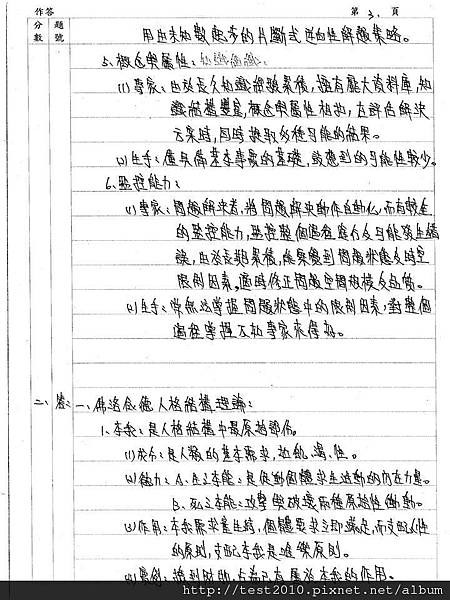 作答
第 3. 頁
分數 題號
用由未知數起步的片斷式逆向性解題策略。
5. 概念與屬性:知識組織:
(1)專家:由於長久知識經驗累積,擁有龐大資料庫,知
識結構豐富,概念與屬性相扣,在評估解決
方案時,同時提取多種可能的結果。
(2)生手:僅具備基本事實的基礎,能想到的可能性較少。
6. 監控能力:
(1)專家:問題解決者,將問題解決動作自動化,而有較佳
的監控能力,監控整個過程進行及可能發生錯
誤,由於長期累積,能察覺到問題狀態及時空
限制因素,適時修正問題空間
(2)生手:常無法掌握問題狀態中的限制因素,對整個
過程掌握不如專家來得好。
二、答:一、佛洛依德人格結構理論:
1. 本我:是人格結構中最原始部份。
(1)成分:是人類的基本需求,如飢、渴、性。
(2)能力:A. 生之本能:是促動個體求生活動的內在力量。
B. 死之本能:攻擊與破壞兩種原始性衝動。
(3)作用:本我需求產生時,個體要求立即滿足,
的原則,支配本我是唯樂原則。
(4)實例: 的作用。
http://test2010.pixnet.net/album